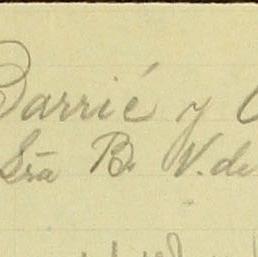 Barrié y
Sra B. V. de